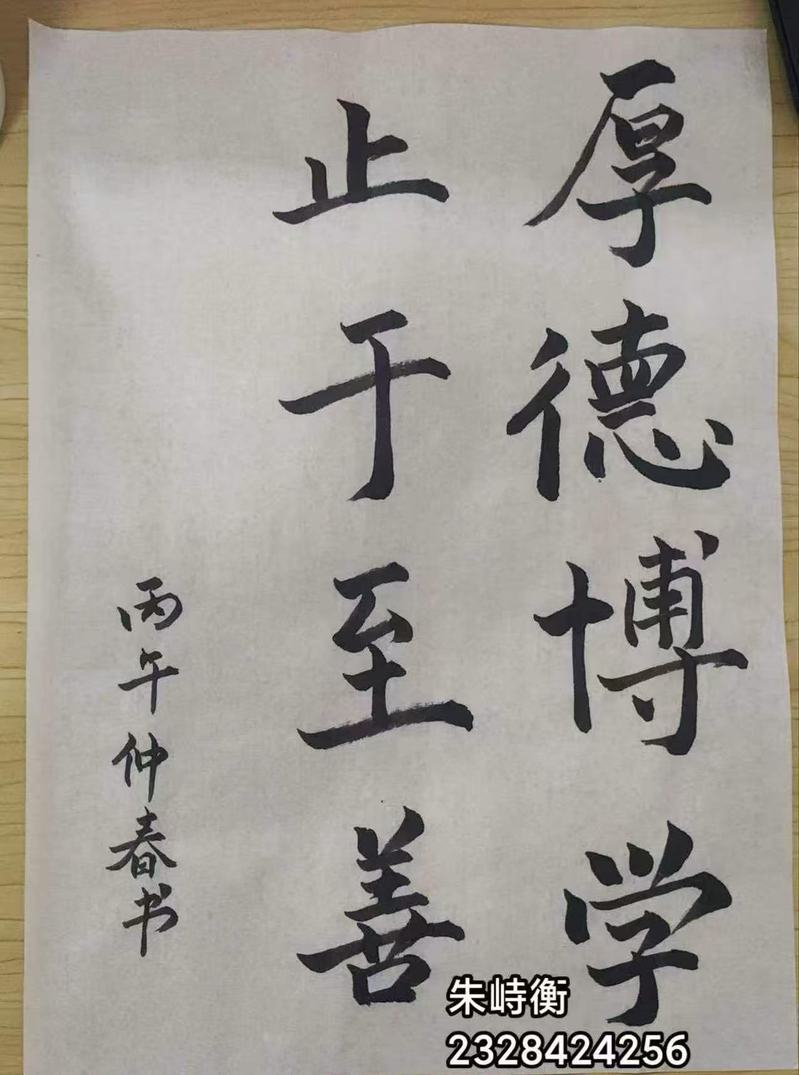 厚德博学
止于至善
丙午仲春书
朱峙衡
2328424256